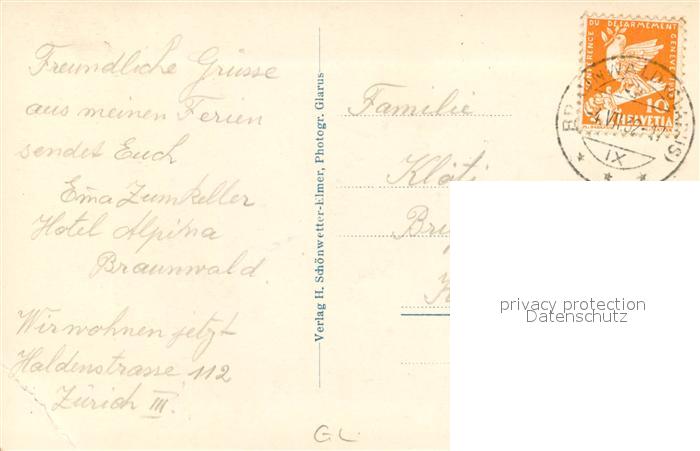 Freundliche Grüsse
aus meinen Ferien
sendet Euch
Zumkeller
Hotel Alpina
Braunwald.
Wir wohnen jetzt
Haldenstrasse 112
Zürich III.
Verlag H. Schönwetter-Elmer, Photogr. Glarus
Familie
CONFERENCE DU DESARMEMENT GENEVE
10
HELVETIA
BRAUNWALD (GLARUS)
IX
privacy protection
Datenschutz
GL